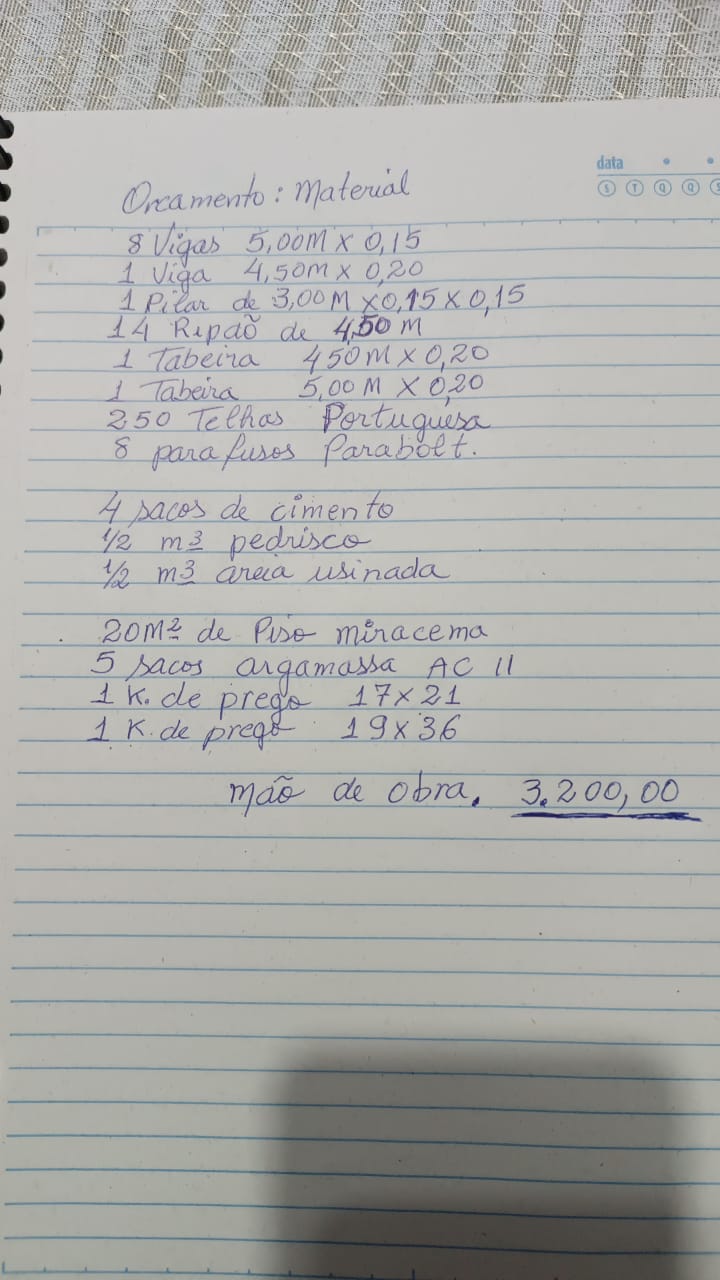 data
S T Q Q S
Orcamento: Material
8 Vigas 5,00M X 0,15
1 Viga 4,50m x 0,20
1 Pilar de 3,00M x 0,15 x 0,15
14 Ripão de 4,50 M
1 Tabeira 450M X 0,20
1 Tabeira 5,00 M X 0,20
250 Telhas Portuguesa
8 parafusos Parabolt.
4 sacos de cimento
1/2 m3 pedrisco
1/2 m3 areia usinada
20M2 de Piso miracema
5 sacos argamassa AC II
1 K. de prego 17x21
1 K. de prego 19x36
mão de obra. 3.200,00